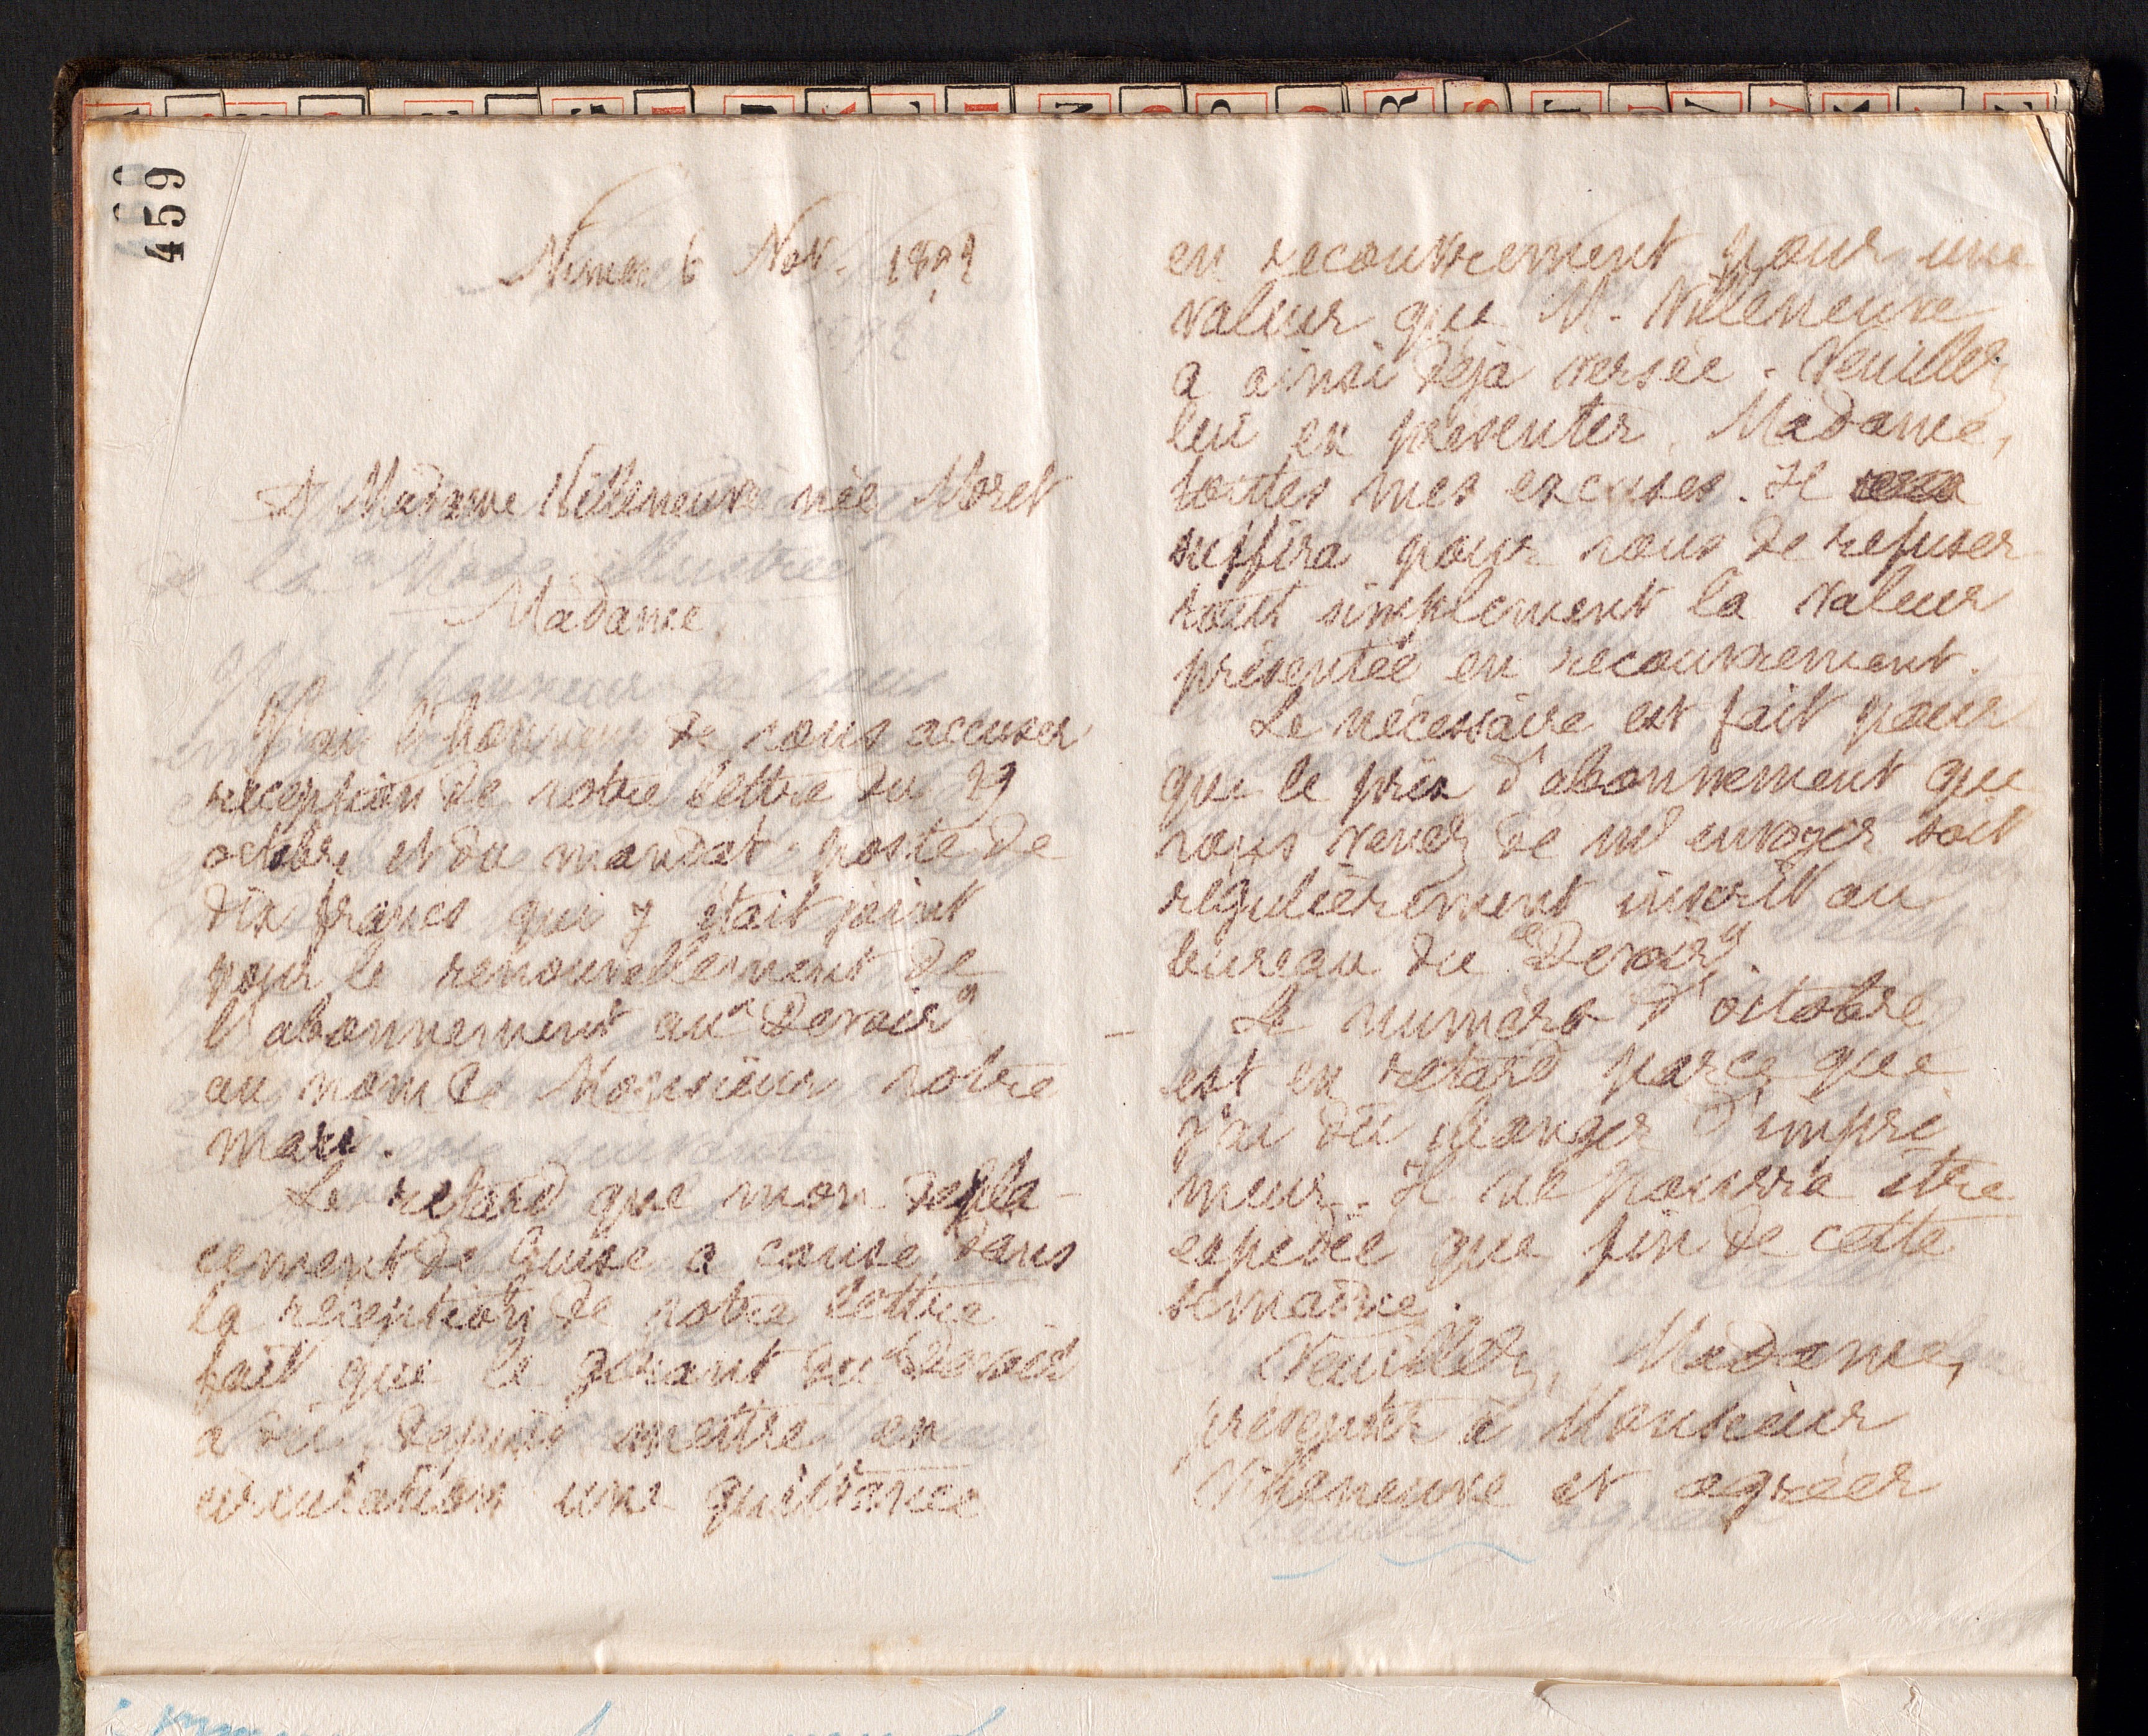 459
Nimes 6 Nov. 1892
A Madame Villeneuve née Moret
Madame,
J'ai l'honneur de vous accuser
réception de votre lettre du 29
octobre et du mandat-poste de
dix francs qui y était joint
pour le renouvellement de
l'abonnement au "Devoir"
au nom de Monsieur votre
mari.
Le retard que mon dépla-
cement de Guise a causé dans
la réception de votre lettre
fait que le gérant du "Devoir
a dû depuis mettre en
circulation une quittance
en recouvrement pour une
valeur que M. Villeneuve
a ainsi déjà versée. Veuillez
lui en présenter, Madame,
toutes mes excuses. Il
suffira pour vous de refuser
tout simplement la valeur
présentée en recouvrement.
Le nécessaire est fait pour
que le prix d'abonnement que
vous venez de m'envoyer soit
régulièrement inscrit au
bureau du "Devoir".
Le numéro d'octobre
est en retard parce que
j'ai dû changer d'impri
meur. Il ne pourra être
expédié que fin de cette
semaine.
Veuillez, Madame,
présenter à Monsieur
Villeneuve et agréer